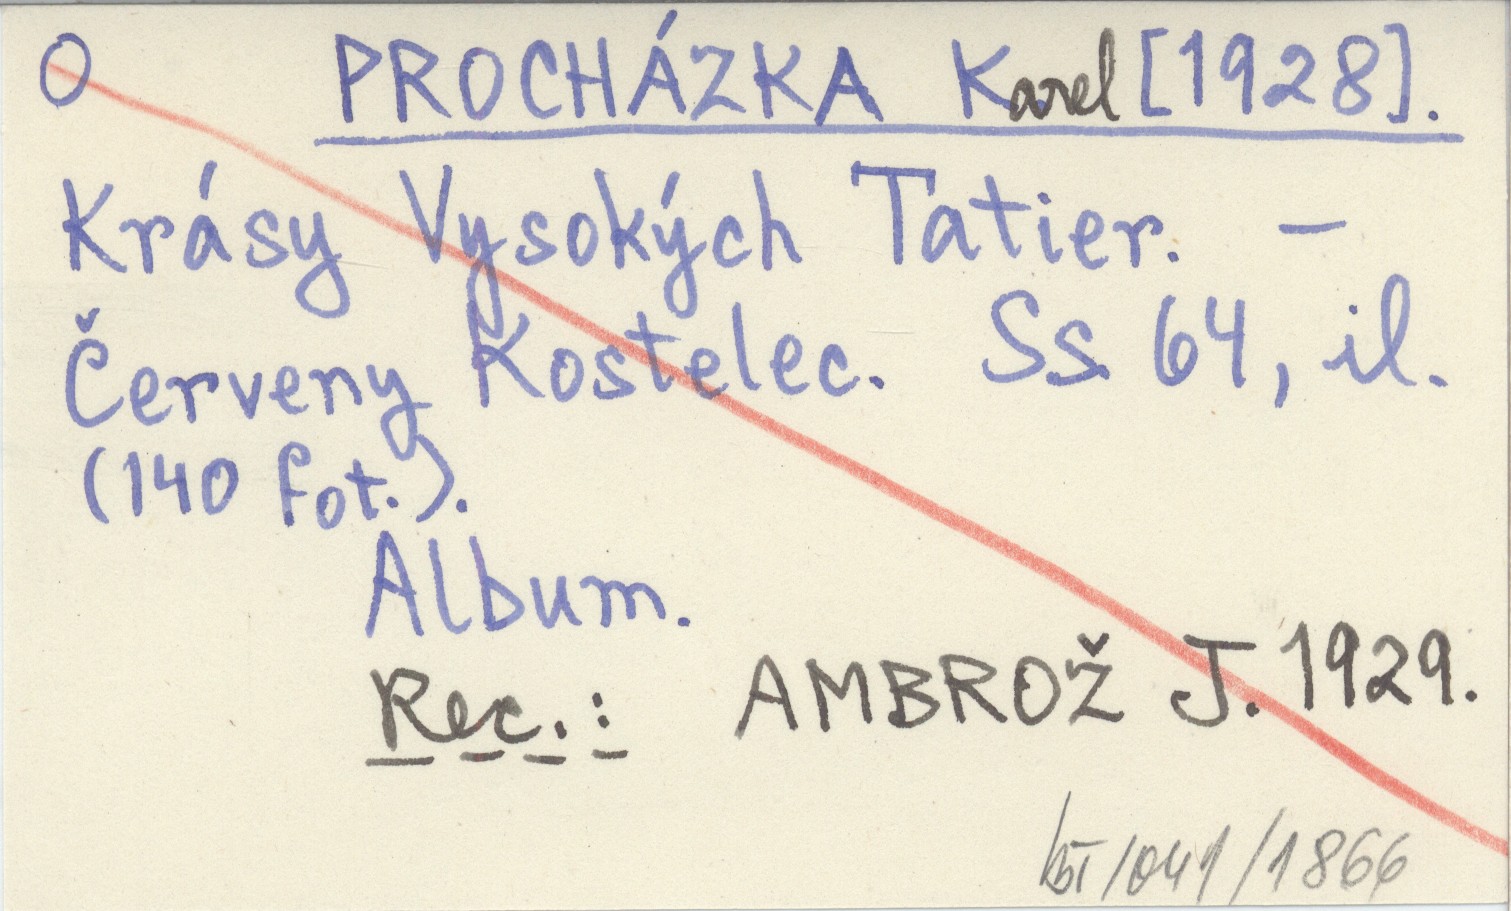 O PROCHÁZKA Karel [1928].
Krásy Vysokých Tatier. –
Červeny Kostelec. Ss 64, il.
(140 fot.).
Album.
Rec.: AMBROŽ J. 1929.
/041/1866